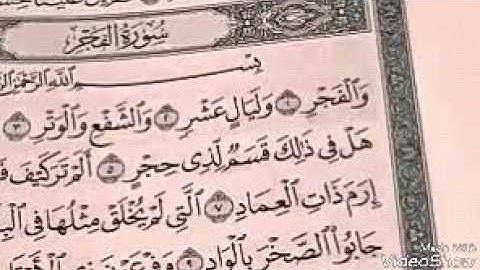 سُورَةُ الفَجْرِ
بِسْمِ اللَّهِ الرَّحْمَٰنِ
وَالْفَجْرِ ١ وَلَيَالٍ عَشْرٍ ٢ وَالشَّفْعِ وَالْوَتْرِ ٣
هَلْ فِي ذَٰلِكَ قَسَمٌ لِّذِي حِجْرٍ ٥ أَلَمْ تَرَ كَيْفَ
إِرَمَ ذَاتِ الْعِمَادِ ٧ الَّتِي لَمْ يُخْلَقْ مِثْلُهَا فِي
جَابُوا الصَّخْرَ بِالْوَادِ ٩ وَفِرْعَوْنَ
Made With
VideoShow